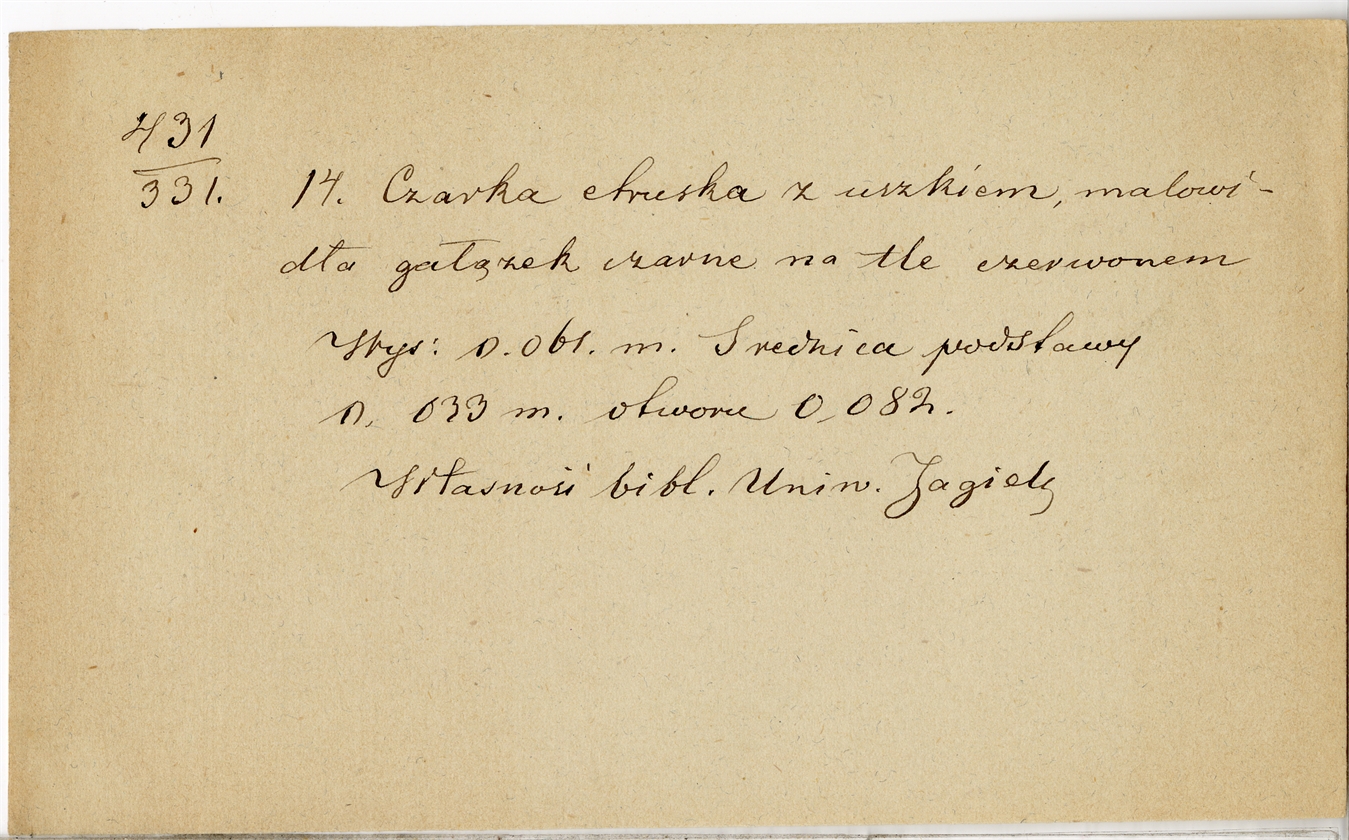 431
331. 14. Czarka etruska z uszkiem, malowi-
dła gałązek czarne na tle czerwonem
Wys: 0.061. m. Srednica podstawy
0, 033 m. otworu 0,082.
Własność bibl. Uniw. Jagielę